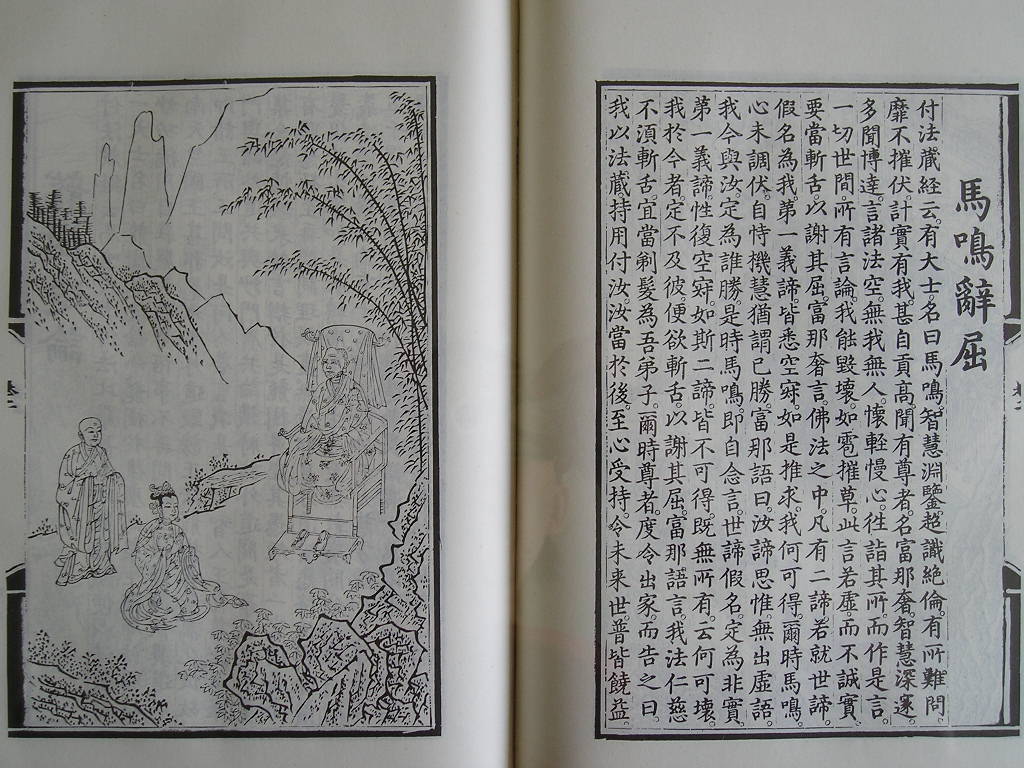 馬鳴辭屈
付法藏経云。有大士。名曰馬鳴。智慧淵鑒。超識絶倫。有所難問。
靡不摧伏。計實有我。甚自貢高。聞有尊者。名富那奢。智慧深邃。
多聞博達。言諸法空。無我無人。懷輕慢心。往詣其所。而作是言。
一切世間。所有言論。我能毀壞。如雹摧草。此言若虛。而不誠實。
要當斬舌。以謝其屈。富那奢言。佛法之中。凡有二諦。若就世諦。
假名為我。第一義諦。皆悉空寂。如是推求。我何可得。爾時馬鳴。
心未調伏。自恃機慧。猶謂已勝。富那語曰。汝諦思惟。無出虛語。
我今與汝。定為誰勝。是時馬鳴。即自念言。世諦假名。定為非實。
第一義諦。性復空寂。如斯二諦。皆不可得。既無所有。云何可壞。
我於今者。定不及彼。便欲斬舌。以謝其屈。富那語言。我法仁慈。
不須斬舌。宜當剃髮。為吾弟子。爾時尊者。度令出家。而告之曰。
我以法藏。持用付汝。汝當於後。至心受持。令未来世。普皆饒益。